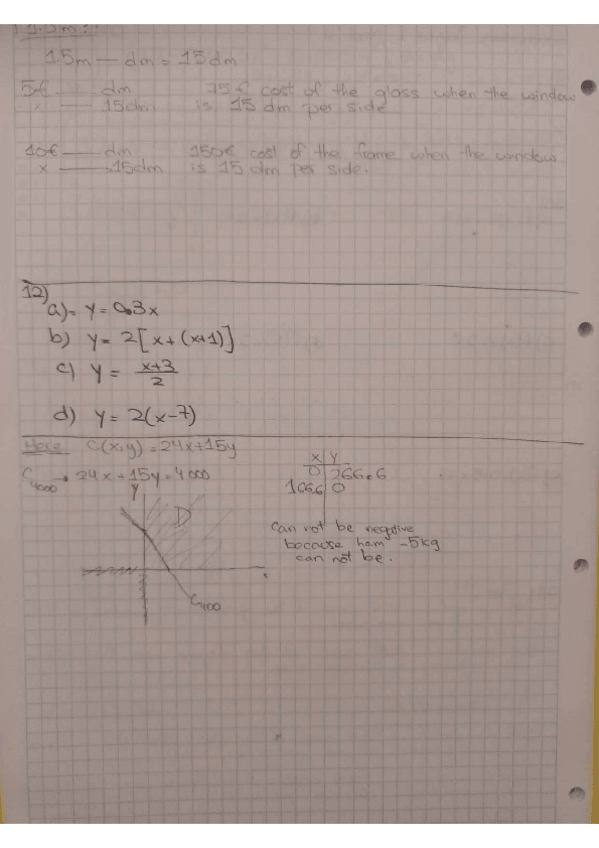 1.5m — dm = 15dm
5€ — dm 75€ cost of the glass when the window
x — 15dm is 15 dm per side
10€ — dm 150€ cost of the frame when the window
x — 15dm is 15 dm per side.
12)
a) y = 0.3x
b) y = 2[x+(x+1)]
c) y = x+3/2
d) y = 2(x-7)
C(x,y) = 24x+15y
C4000 → 24x+15y=4000
x y
0 266.6
166.6 0
y
D
can not be negative
because ham -5kg
can not be.
C400